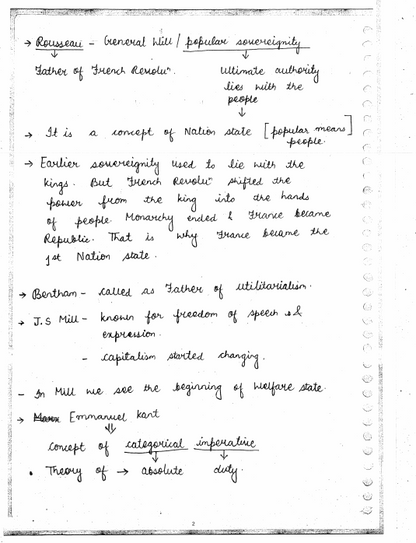 → Rousseau – General Will / popular sovereignity
Father of French Revoluⁿ. Ultimate authority
lies with the
people
→ It is a concept of Nation state [popular means
people.]
→ Earlier sovereignity used to lie with the
kings. But French Revoluⁿ shifted the
power from the king into the hands
of people. Monarchy ended & France became
Republic. That is why France became the
1st Nation state.
→ Bentham – called as Father of utilitarianism.
→ J.S Mill – known for freedom of speech &
expression.
– capitalism started changing.
– In Mill we see the beginning of Welfare state.
→ Emmanuel Kant
concept of categorical imperative
• Theory of → absolute duty.
2